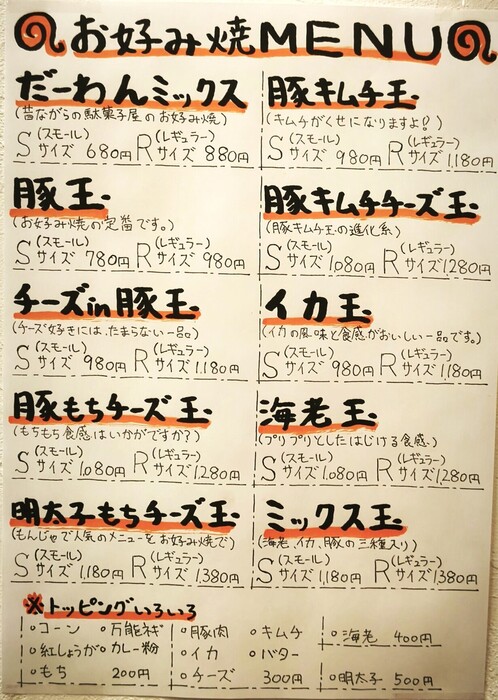 お好み焼MENU
だーわんミックス
(昔ながらの駄菓子屋のお好み焼)
S(スモール)サイズ 680円 R(レギュラー)サイズ 880円
豚玉
(お好み焼の定番です。)
S(スモール)サイズ 780円 R(レギュラー)サイズ 980円
チーズin豚玉
(チーズ好きには、たまらない一品)
S(スモール)サイズ 980円 R(レギュラー)サイズ 1,180円
豚もちチーズ玉
(もちもち食感はいかがですか?)
S(スモール)サイズ 1,080円 R(レギュラー)サイズ 1,280円
明太子もちチーズ玉
(もんじゃで人気のメニューをお好み焼で)
S(スモール)サイズ 1,180円 R(レギュラー)サイズ 1,380円
豚キムチ玉
(キムチがくせになりますよ?)
S(スモール)サイズ 980円 R(レギュラー)サイズ 1,180円
豚キムチチーズ玉
(豚キムチ玉の進化系)
S(スモール)サイズ 1,080円 R(レギュラー)サイズ 1,280円
イカ玉
(イカの風味と食感がおいしい一品です。)
S(スモール)サイズ 980円 R(レギュラー)サイズ 1,180円
海老玉
(プリプリとしたはじける食感)
S(スモール)サイズ 1,080円 R(レギュラー)サイズ 1,280円
ミックス玉
(海老、イカ、豚の三種入り)
S(スモール)サイズ 1,180円 R(レギュラー)サイズ 1,380円
※トッピングいろいろ
○コーン ○万能ネギ
○紅しょうが ○カレー粉
○もち 200円
○豚肉 ○キムチ
○イカ ○バター
○チーズ 300円
○海老 400円
○明太子 500円